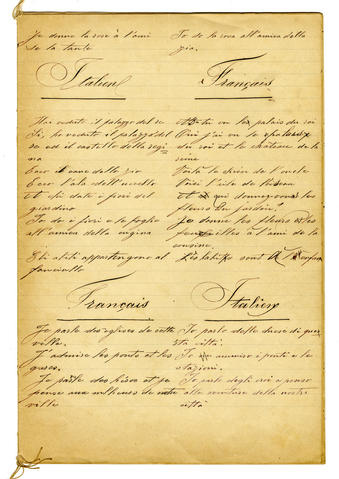 Je donne la rose à l'ami
de la tante
Io do la rosa all'amico della
zia.
Italien
Français
Hai veduto il palazzo del re
Si, ho veduto il palazzo del
re ed il castello della regi
na
Ecco il cane dello zio
Ecco l'ala dell'uccello
Et chi date i fiori del
giardino
Io do i fiori e le foglie
all'amica della cugina
Gli abiti appartengono al
fanciullo
As-tu vu le palais du roi
Oui j'ai vu le palais
du roi et le château de la
reine
Voilà le chien de l'oncle
Voici l'aile de l'oiseau
Et à qui donnez-vous les
fleurs du jardin.
Je donne les fleurs et les
feuilles à l'ami de la
cousine.
Les habits sont à
Français
Italien
Je parle des églises de cette
ville.
J'admire les ponts et les
gares.
Je parle des héros et je
pense aux malheurs de notre
ville
Io parlo delle chiese di que
sta città.
Io ammiro i ponti e le
stazioni.
Io parlo degli eroi e penso
alle sventure della nostra
città